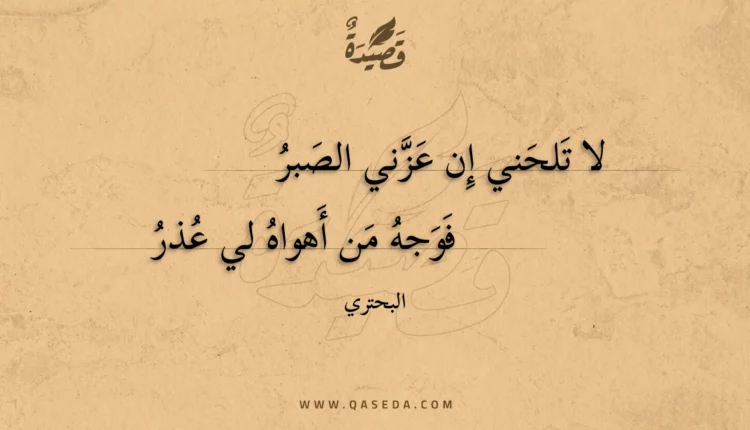 قَصِيْدَةٌ
لا تَلحَني إِن عَزَّني الصَبرُ
فَوَجهُ مَن أَهواهُ لي عُذرُ
البحتري
WWW.QASEDA.COM